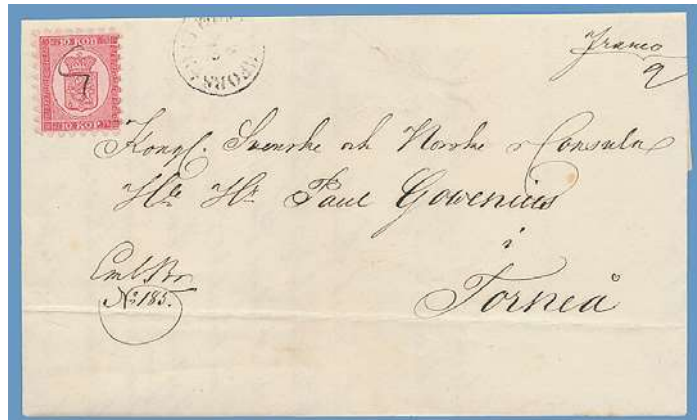 10 KOP.
10 KOP.
Franco
9
Kongl. Svenske och Norske Consuln
Paul Gowenius
i
Torneå
No. 185.